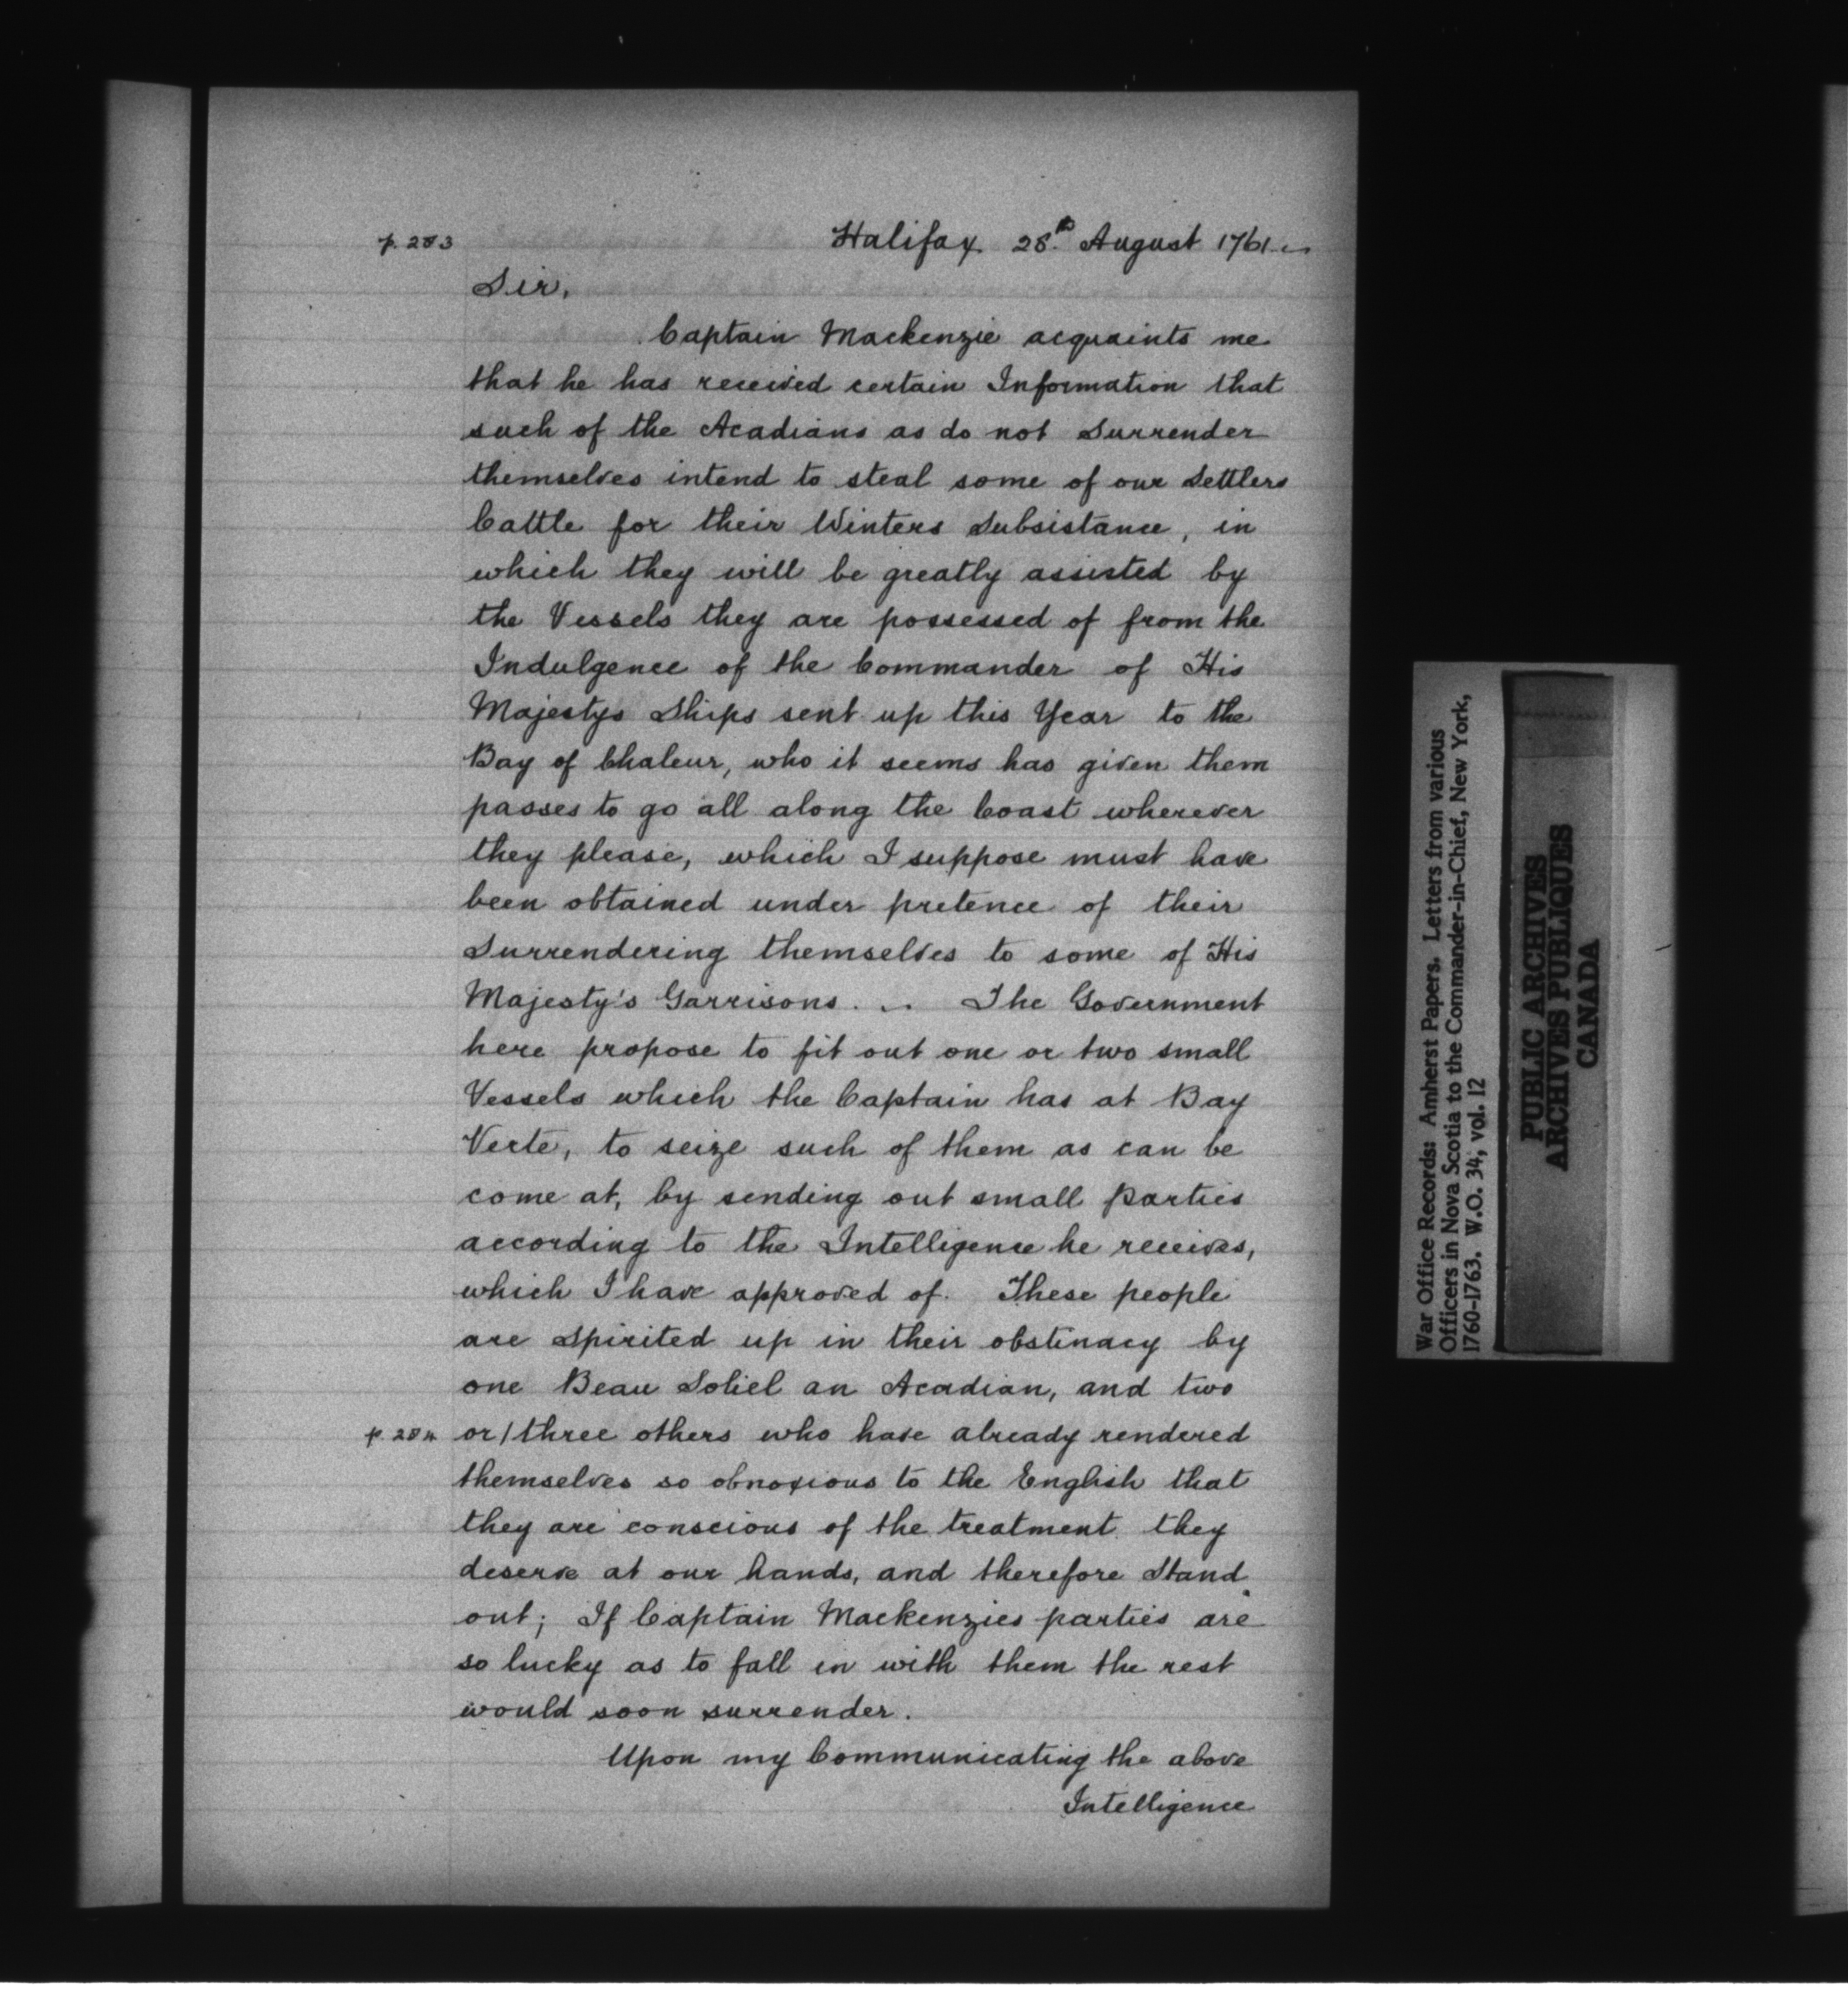 p. 283
Halifax 28th August 1761.
Sir,
Captain Mackenzie acquaints me
that he has received certain Information that
such of the Acadians as do not Surrender
themselves intend to steal some of our Settlers
Cattle for their Winters Subsistance, in
which they will be greatly assisted by
the Vessels they are possessed of from the
Indulgence of the Commander of His
Majestys Ships sent up this Year to the
Bay of Chaleur, who it seems has given them
passes to go all along the Coast wherever
they please, which I suppose must have
been obtained under pretence of their
Surrendering themselves to some of His
Majesty's Garrisons. .. The Government
here propose to fit out one or two small
Vessels which the Captain has at Bay
Verte, to seize such of them as can be
come at, by sending out small parties
according to the Intelligence he receives,
which I have approved of. These people
are Spirited up in their obstinacy by
one Beau Soliel an Acadian, and two
p. 284 or/three others who have already rendered
themselves so obnoxious to the English that
they are conscious of the treatment they
deserve at our hands, and therefore Stand
out; If Captain Mackenzies parties are
so lucky as to fall in with them the rest
would soon surrender.
Upon my Communicating the above
Intelligence
War Office Records: Amherst Papers. Letters from various
Officers in Nova Scotia to the Commander-in-Chief, New York,
1760-1763. W.O. 34, vol. 12
PUBLIC ARCHIVES
ARCHIVES PUBLIQUES
CANADA